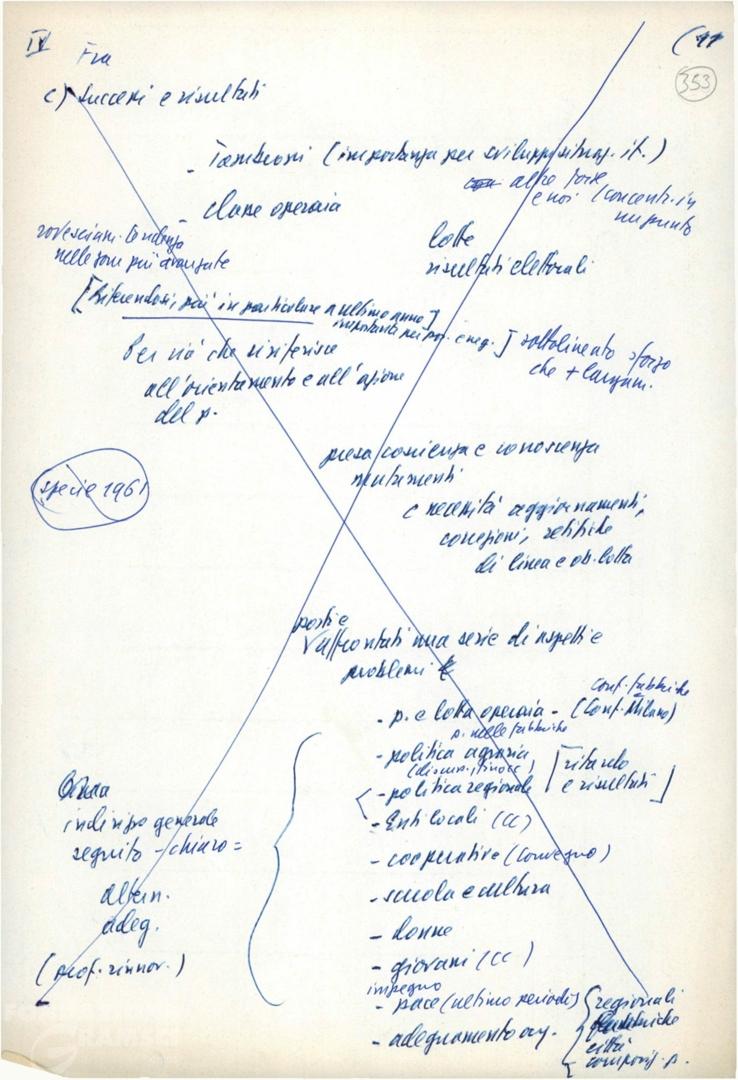 IV Fra (11
353
c) Successi e risultati
- Tambroni (importanza per svilupp. situaz. it.)
altre forze
e noi (concentr. in
un punto
- classe operaia
rovesciam. tendenza
nelle zone più avanzate
lotte
risultati elettorali
[Riferendosi, più in particolare a ultimo anno]
importante per pos. e neg.]
Per ciò che si riferisce
sottolineato sforzo
che + lungam.
all'orientamento e all'azione
del p.
presa coscienza e conoscenza
mutamenti
specie 1961
e necessità aggiornamenti,
correzioni, rettifiche
di linea e ob. lotta
posti e
affrontati una serie di aspetti e
problemi
conf. fabbriche
- p. e lotta operaia - (Conf. Milano)
p. nelle fabbriche
- politica agraria
(discuss.
- politica regionale
[ritardo
e risultati]
- Enti locali (CC)
- cooperative (Convegno)
- scuola e cultura
- donne
- giovani (CC)
impegno
- pace (ultimo periodo)
- adeguamento org.
{regionali
fabbriche
città
composiz. p.
indirizzo generale
seguito - chiaro =
altern.
adeg.
(prof. rinnov.)